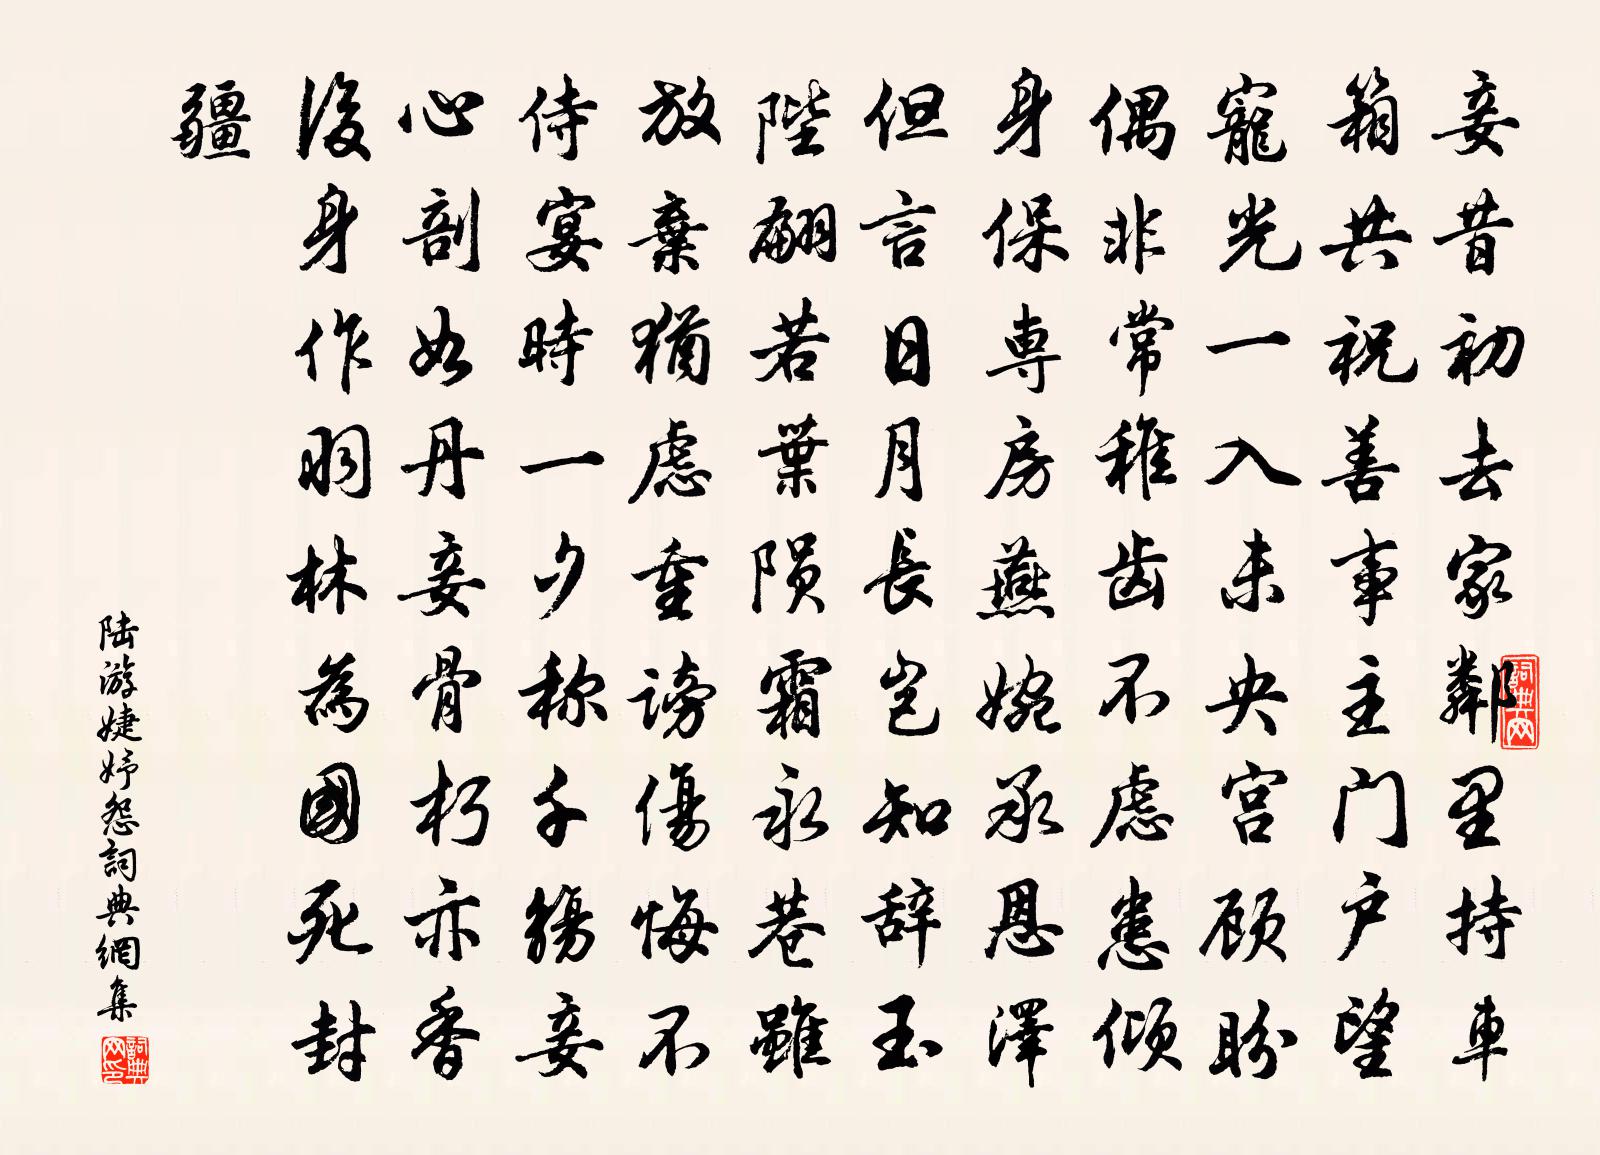 妾昔初去家鄰里持車
箱共祝善事主门户望
寵光一入未央宫顾盼
偶非常稚齿不虑患倾
身保専房燕婉承恩澤
但言日月長岂知辞玉
陛翩若葉陨霜永巷雖
放棄猶虑重謗傷悔不
侍宴時一夕称千觴妾
心剖如丹妾骨朽亦香
後身作羽林為國死封
疆
陆游婕妤怨詞典網集
詞典网
詞典网印